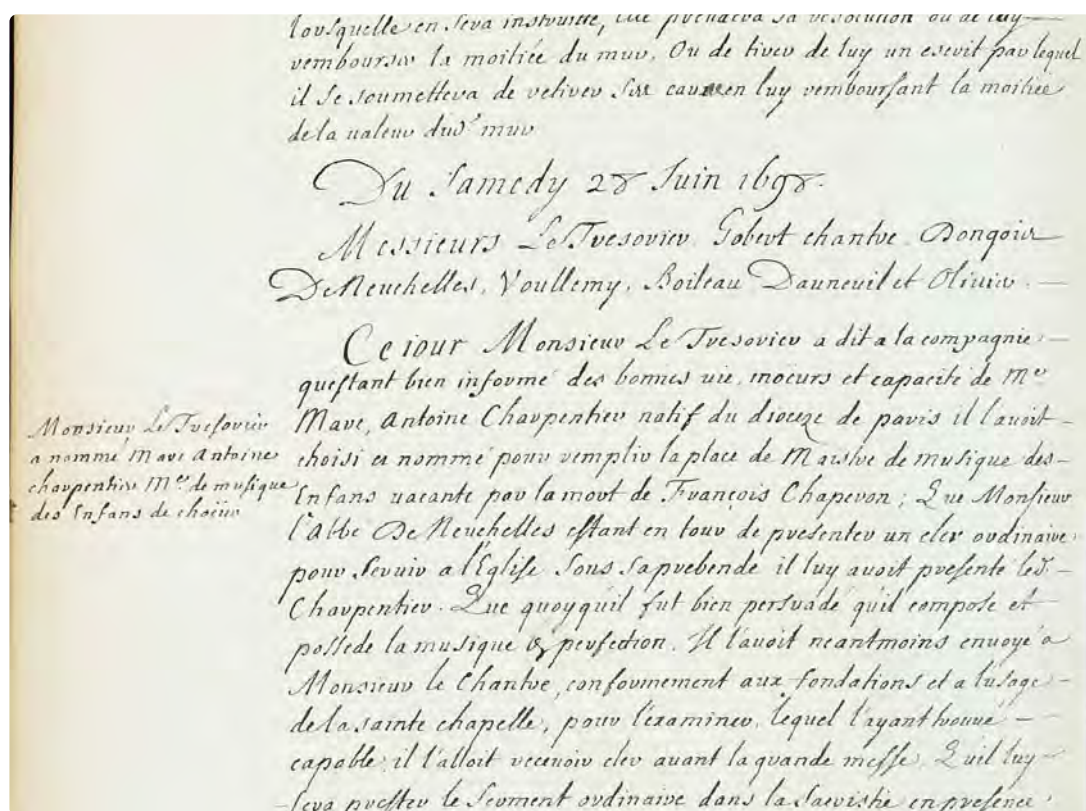 lorsquelle en sera instruitte, elle prendera sa resolution ou de luy
rembourser la moitiée du mur, Ou de tirer de luy un escrit par lequel
il se soumettera de retirer en luy remboursant la moitiée
de la valeur dud.t mur
Du Samedy 28 Juin 1698.
Messieurs Le Tresorier, Gobert chantre, Dongois
De Neuchelles, Voullemy, Boileau Dauneuil et Olivier.
Ce iour Monsieur Le Tresorier a dit a la compagnie
questant bien informé des bonnes vie, moeurs et capacité de Me
Marc, Antoine Charpentier natif du dioceze de paris il l'avoit
choisi et nommé pour remplir la place de Maistre de musique des
Enfans vacante par la mort de François Chaperon; Que Monsieur
l'Abbe De Neuchelles estant en tour de presenter un clerc ordinaire
pour servir a l'Eglise sous sa prebende il luy avoit presenté led.
Charpentier. Que quoyquil fut bien persuadé quil compose et
possede la musique perfection. Il l'avoit neantmoins envoyé a
Monsieur le Chantre, conformement aux fondations et a lusage
de la sainte chapelle, pour l'examiner, lequel l'ayant trouvé
capable, il l'alloit recevoir clerc avant la grande messe, Quil luy
fera prester le serment ordinaire dans la sacristie en presence
Monsieur Le Tresorier
a nommé Marc Antoine
charpentier Me de musique
des Enfans de choeur